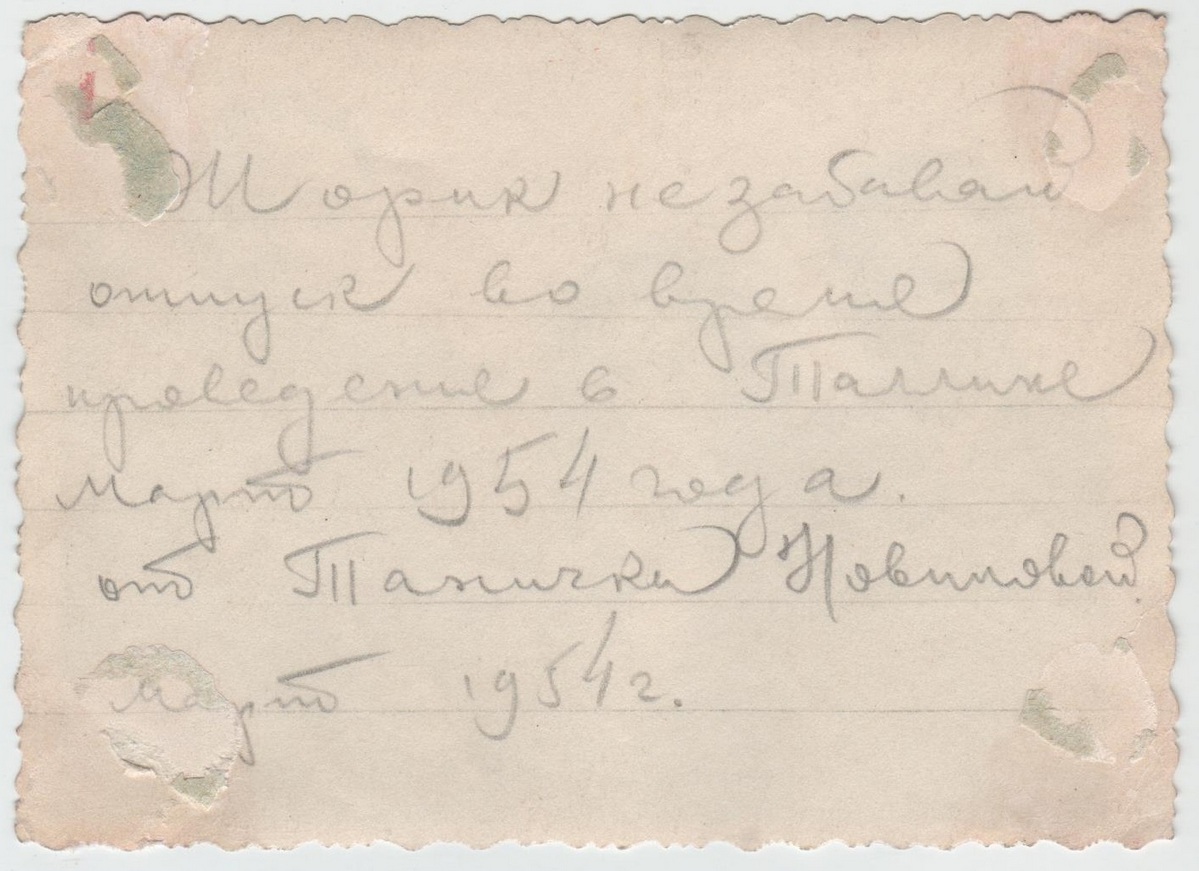 Жорик не забавай
отпуск во время
проведение в Таллине
Март 1954 года.
от Танички Новиковой.
март 1954 г.